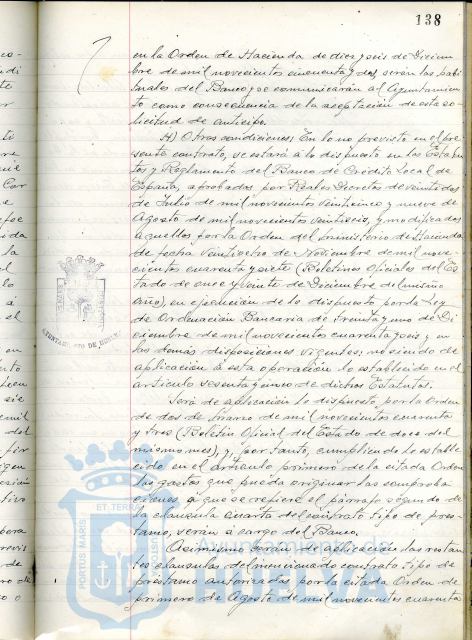 138
en la Orden de Hacienda de diez y seis de Diciem-
bre de mil novecientos cincuenta y dos, serán los habi-
tuales del Banco, y se comunicarán al Ayuntamien-
to como consecuencia de la aceptación de esta so-
licitud de anticipo.
H) Otras condiciones: En lo no previsto en el pre-
sente contrato, se estará a lo dispuesto en los Estatu-
tos y Reglamento del Banco de Crédito Local de
España, aprobados por Reales Decretos de veintidos
de Julio de mil novecientos veinticinco y nueve de
Agosto de mil novecientos veintiseis, y modificados
aquellos por la Orden del Ministerio de Hacienda
de fecha veintiocho de Noviembre de mil nove-
cientos cuarenta y siete (Boletines Oficiales del Es-
tado de once y veinte de Diciembre del mismo
año), en ejecución de lo dispuesto por la Ley
de Ordenación Bancaria de treinta y uno de Di-
ciembre de mil novecientos cuarenta y seis y en
las demás disposiciones vigentes, no siendo de
aplicación a esta operación lo establecido en el
artículo sesenta y cinco de dichos Estatutos.
Será de aplicación lo dispuesto por la Orden
de dos de Marzo de mil novecientos cuarenta
y tres (Boletín Oficial del Estado de doce del
mismo mes), y, por tanto, cumpliendo lo estable-
cido en el artículo primero de la citada Orden
los gastos que pueda originar las comproba-
ciones a que se refiere el párrafo segundo de
la clausula cuarta del contrato tipo de pres-
tamo, serán a cargo del Banco.
Asimismo serán de aplicación las restan-
tes clausulas del mencionado contrato tipo de
préstamo autorizadas por la citada Orden de
primero de Agosto de mil novecientos cuarenta
AYUNTAMIENTO DE
PORTUS MARIS
ET TERRA
Ayuntamiento